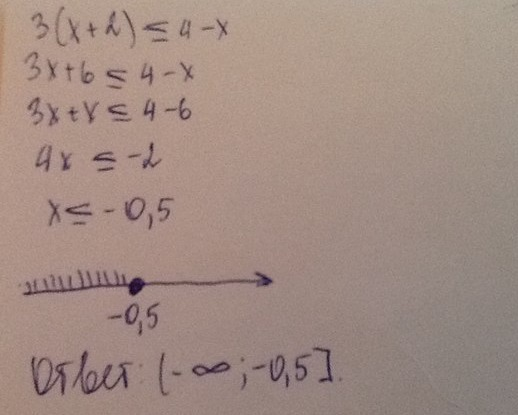 3(x+2) ≤ 4-x
3x+6 ≤ 4-x
3x+x ≤ 4-6
4x ≤ -2
x ≤ -0,5
-0,5
Ответ: (-∞; -0,5].